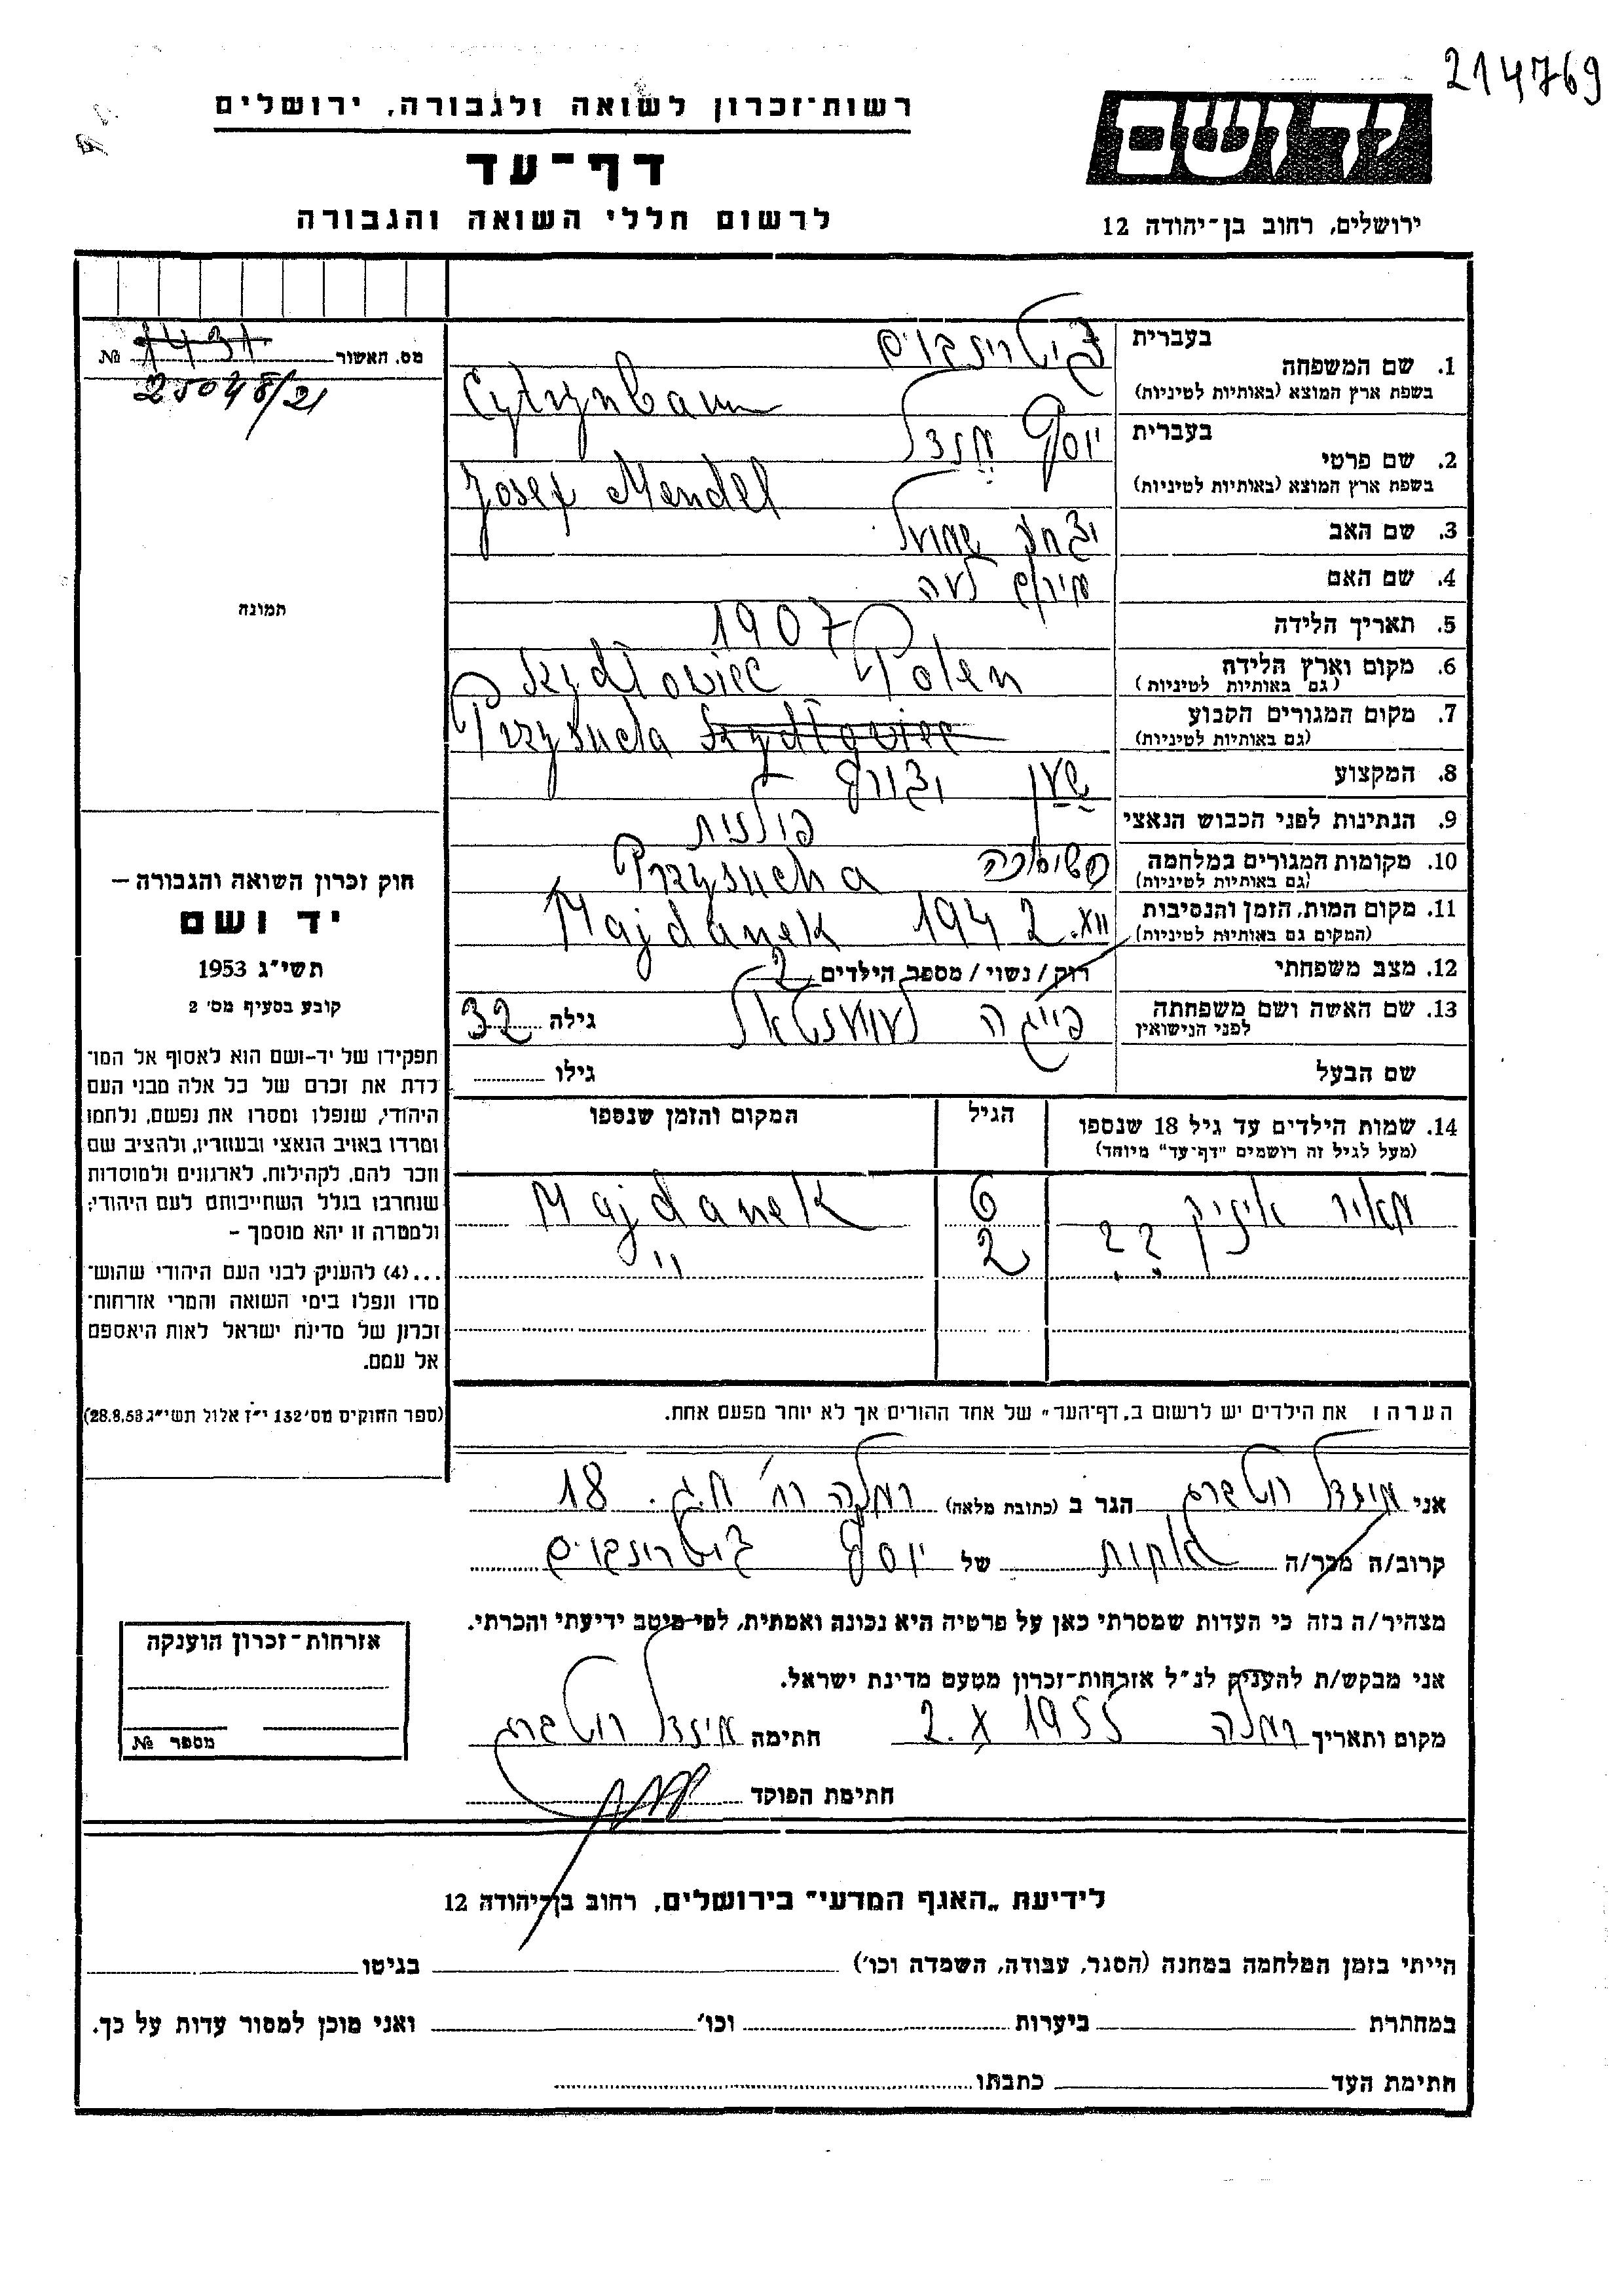 214769
רשות־זכרון לשואה ולגבורה, ירושלים
דף־עד
לרשום חללי השואה והגבורה
יד ושם
ירושלים, רחוב בן־יהודה 12
מס. האשור 1431 №
25048/21
תמונה
1. שם המשפחה
בעברית ציטרינבוים
בשפת ארץ המוצא (באותיות לטיניות) Cytrynbaum
2. שם פרטי
בעברית יוסף מנדל
בשפת ארץ המוצא (באותיות לטיניות) Josef Mendel
3. שם האב יצחק שמואל
4. שם האם מירים לאה
5. תאריך הלידה 1907
6. מקום וארץ הלידה Szydłowiec Polen
(גם באותיות לטיניות)
7. מקום המגורים הקבוע Przysucha Szydłowiec
(גם באותיות לטיניות)
8. המקצוע שען וצורף
9. הנתינות לפני הכבוש הנאצי פולנית
10. מקומות המגורים במלחמה Przysucha
(גם באותיות לטיניות)
11. מקום המות, הזמן והנסיבות XII. 1942 Majdanek
(המקום גם באותיות לטיניות)
12. מצב משפחתי רוק / נשוי / מספר הילדים 2
13. שם האשה ושם משפחתה פייגה גילה 32
לפני הנישואין
שם הבעל גילו
14. שמות הילדים עד גיל 18 שנספו הגיל המקום והזמן שנספו
(מעל לגיל זה רושמים "דף־עד" מיוחד)
מאיר איציק 6 Majdanek
?? 2 "
הערה: את הילדים יש לרשום ב„דף־העד" של אחד ההורים אך לא יותר מפעם אחת.
חוק זכרון השואה והגבורה —
יד ושם
תשי"ג 1953
קובע בסעיף מס׳ 2
תפקידו של יד-ושם הוא לאסוף אל המו־
לדת את זכרם של כל אלה מבני העם
היהודי, שנפלו ומסרו את נפשם, נלחמו
ומרדו באויב הנאצי ובעוזריו, ולהציב שם
וזכר להם, לקהילות, לארגונים ולמוסדות
שנחרבו בגלל השתייכותם לעם היהודי;
ולמטרה זו יהא מוסמך –
...(4) להעניק לבני העם היהודי שהוש־
מדו ונפלו בימי השואה והמרי אזרחות־
זכרון של מדינת ישראל לאות היאספם
אל עמם.
(ספר החוקים מס׳ 132 י"ז אלול תשי"ג 28.8.53)
אני מינדל רוטברג הגר ב (כתובת מלאה) רמלה רח׳ ח.ג. 18
קרוב/ה מכר/ה אחות של יוסף ציטרינבוים
מצהיר/ה בזה כי העדות שמסרתי כאן על פרטיה היא נכונה ואמתית, לפי מיטב ידיעתי והכרתי.
אני מבקש/ת להעניק לנ"ל אזרחות־זכרון מטעם מדינת ישראל.
מקום ותאריך רמלה 2. X 1955 חתימה מינדל רוטברג
חתימת הפוקד
אזרחות־זכרון הוענקה
מספר №
לידיעת „האגף המדעי" בירושלים, רחוב בן־יהודה 12
הייתי בזמן המלחמה במחנה (הסגר, עבודה, השמדה וכו׳) בגיטו
במחתרת ביערות וכו׳ ואני מוכן למסור עדות על כך.
חתימת העד כתבתו